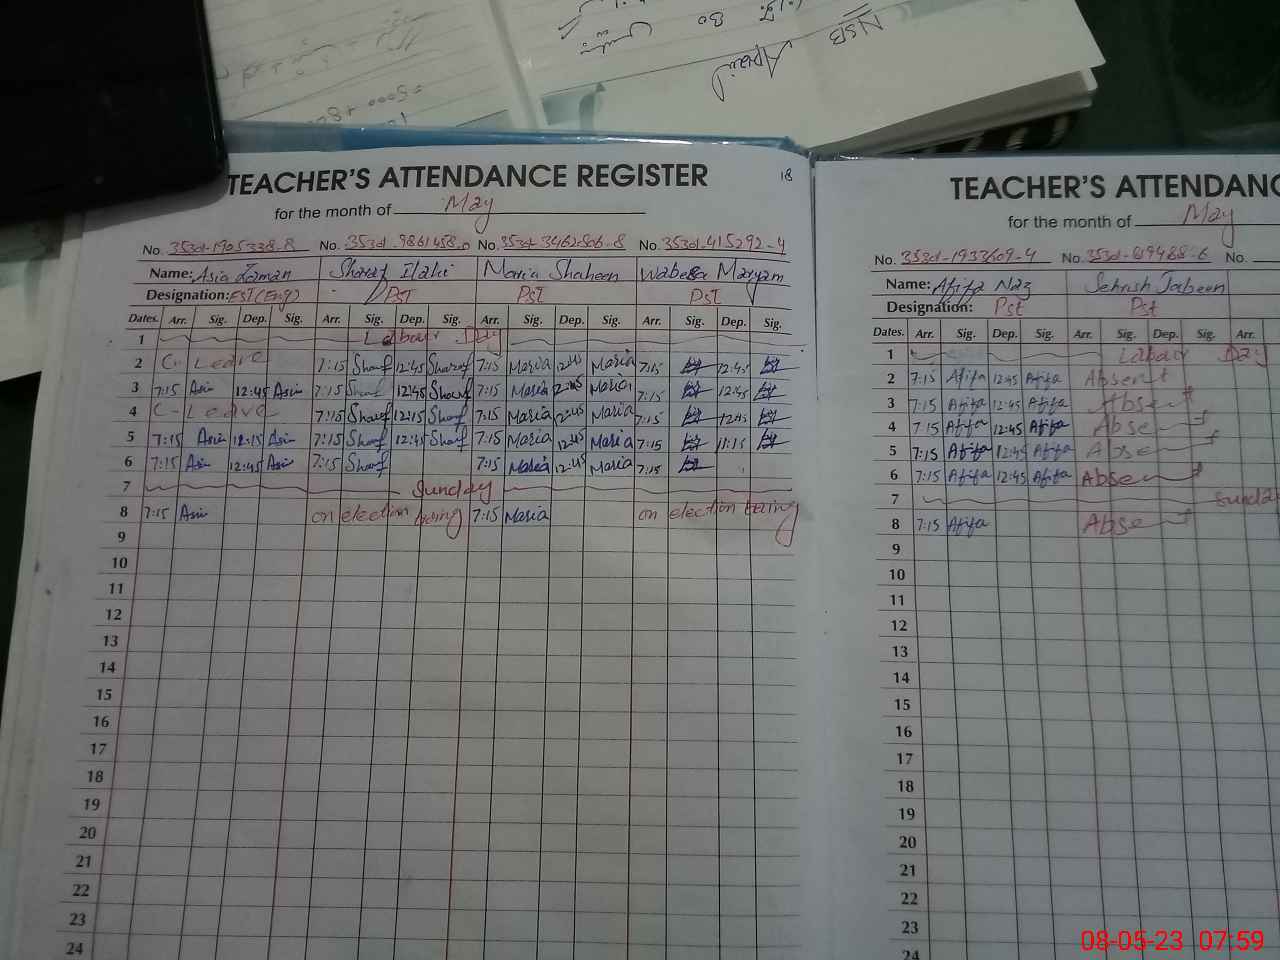 NSB
April
80
= 5000 + 8
TEACHER'S ATTENDANCE REGISTER
18
for the month of May
No. No. No. No.
Name: Asia Zaman Sharaf Ilahi Maria Shaheen Maryam
Designation: EST (Eng) PST PST PST
Dates. Arr. Sig. Dep. Sig. Arr. Sig. Dep. Sig. Arr. Sig. Dep. Sig. Arr. Sig. Dep. Sig.
1 Labour Day
2 C- Leave 7:15 Sharaf 12:45 Sharaf 7:15 Maria 12:45 Maria 7:15 12:45
3 7:15 Asia 12:45 Asia 7:15 Sharaf 12:45 Sharaf 7:15 Maria 12:45 Maria 7:15 12:45
4 C- Leave 7:15 Sharaf 12:15 Sharaf 7:15 Maria 12:45 Maria 7:15 12:45
5 7:15 Asia 12:15 Asia 7:15 Sharaf 12:45 Sharaf 7:15 Maria 12:45 Maria 7:15
6 7:15 Asia 12:45 Asia 7:15 Sharaf 7:15 Maria 12:45 Maria 7:15
7 Sunday
8 7:15 Asia on election 7:15 Maria on election
9
10
11
12
13
14
15
16
17
18
19
20
21
22
23
24
TEACHER'S ATTENDANC
for the month of May
No. 353d-1933609-4 No. No.
Name: Afifa Naz Sehrish Jabeen
Designation: Pst Pst
Dates. Arr. Sig. Dep. Sig. Arr. Sig. Dep. Sig. Arr.
1 Labour Day
2 7:15 Afifa 12:45 Afifa Absent
3 7:15 Afifa 12:45 Afifa Absent
4 7:15 Afifa 12:45 Afifa Abse t
5 7:15 Afifa 12:45 Afifa Abse t
6 7:15 Afifa 12:45 Afifa Abse t
7 Sunda
8 7:15 Afifa Abse t
9
10
11
12
13
14
15
16
17
18
19
20
21
22
23
24
08-05-23 07:59